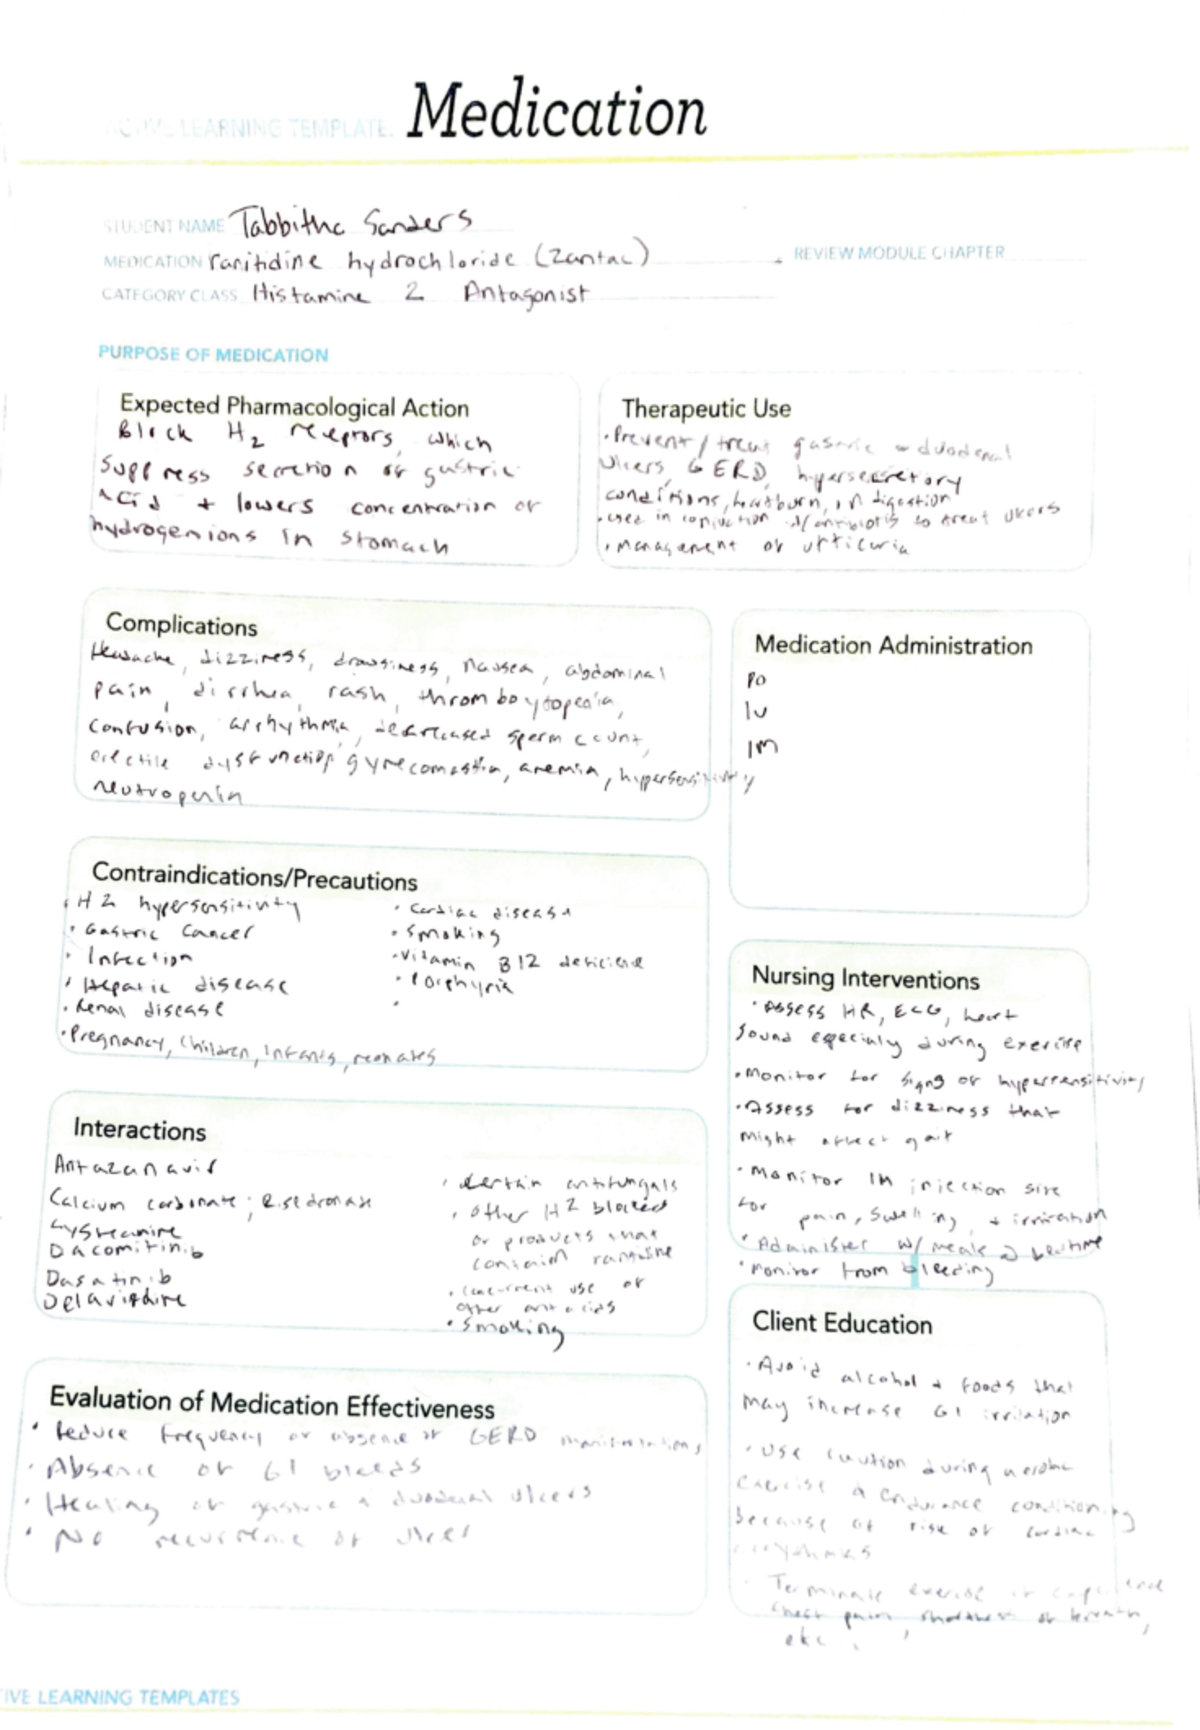 ACTIVE LEARNING TEMPLATE: Medication
STUDENT NAME Tabbitha Sanders
MEDICATION ranitidine hydrochloride (Zantac)
REVIEW MODULE CHAPTER
CATEGORY CLASS Histamine 2 Antagonist
PURPOSE OF MEDICATION
Expected Pharmacological Action
Block H2 receptors, which
suppress secretion of gastric
acid + lowers concentration of
hydrogenions in stomach
Therapeutic Use
• Prevent/treat gastric duodenal
ulcers, GERD, hypersecretory
conditions, heartburn, indigestion
• used in w/ antibiotis to treat ulcers
• management of urticuria
Complications
Headache, dizziness, drowsiness, nausea, abdominal
pain, rash,
confusion, arrhythmia, decreased sperm count,
erectile dysfunction, gynecomastia, anemia, hypersensitivity
Medication Administration
PO
IV
IM
Contraindications/Precautions
• H2 hypersensitivity
• Gastric Cancer
• Infection
• Hepatic disease
• Renal disease
• Pregnancy, Children, Infants, neonates
• Cardiac disease
• Smoking
• Vitamin B12
• Porphyria
•
Nursing Interventions
• Assess HR, ECG, heart
sound during exercise
• Monitor for signs of hypersensitivity
• Assess for dizziness that
might affect gait
• Monitor IM injection site
for pain, swelling, + irritation
• Administer w/ meals bedtime
• monitor from bleeding
Interactions
Calcium carbonate; Risedronate
Dasatinib
• certain antifungals
• other H2
or products that
contain
• concurrent use of
other antacids
• Smoking
Client Education
• Avoid alcohol + foods that
may increase GI irritation
• Use caution during aerobic
exercise endurance conditioning
because of risk of cardiac
Terminate
chest pain, shortness of breath,
etc.
Evaluation of Medication Effectiveness
• Reduce frequency or absence of GERD manifestations
• Absence of GI bleeds
• Healing of gastric + duodenal ulcers
• No of ulcer
IVE LEARNING TEMPLATES